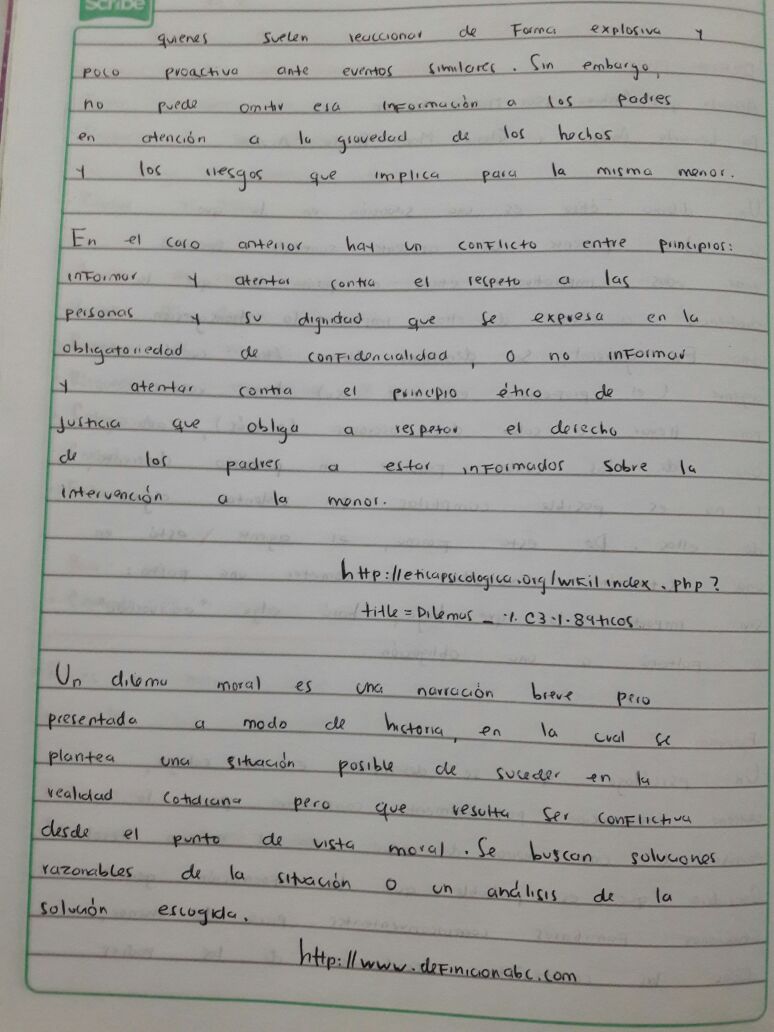 Scribe
quienes suelen reaccionar de Forma explosiva y
poco proactiva ante eventos similares. Sin embargo,
no puede omitir esa información a los padres
en atención a la gravedad de los hechos
y los riesgos que implica para la misma menor.
En el caso anterior hay un conflicto entre principios:
informar y atentar contra el respeto a las
personas y su dignidad que se expresa en la
obligatoriedad de confidencialidad, o no informar
y atentar contra el principio ético de
justicia que obliga a respetar el derecho
de los padres a estar informados sobre la
intervención a la menor.
http://eticapsicologica.org/wiki/index.php?
title=Dilemas_-%.C3%.89ticos
Un dilema moral es una narración breve pero
presentada a modo de historia, en la cual se
plantea una situación posible de suceder en la
realidad cotidiana pero que resulta ser conflictiva
desde el punto de vista moral. Se buscan soluciones
razonables de la situación o un análisis de la
solución escogida.
http://www.definicionabc.com